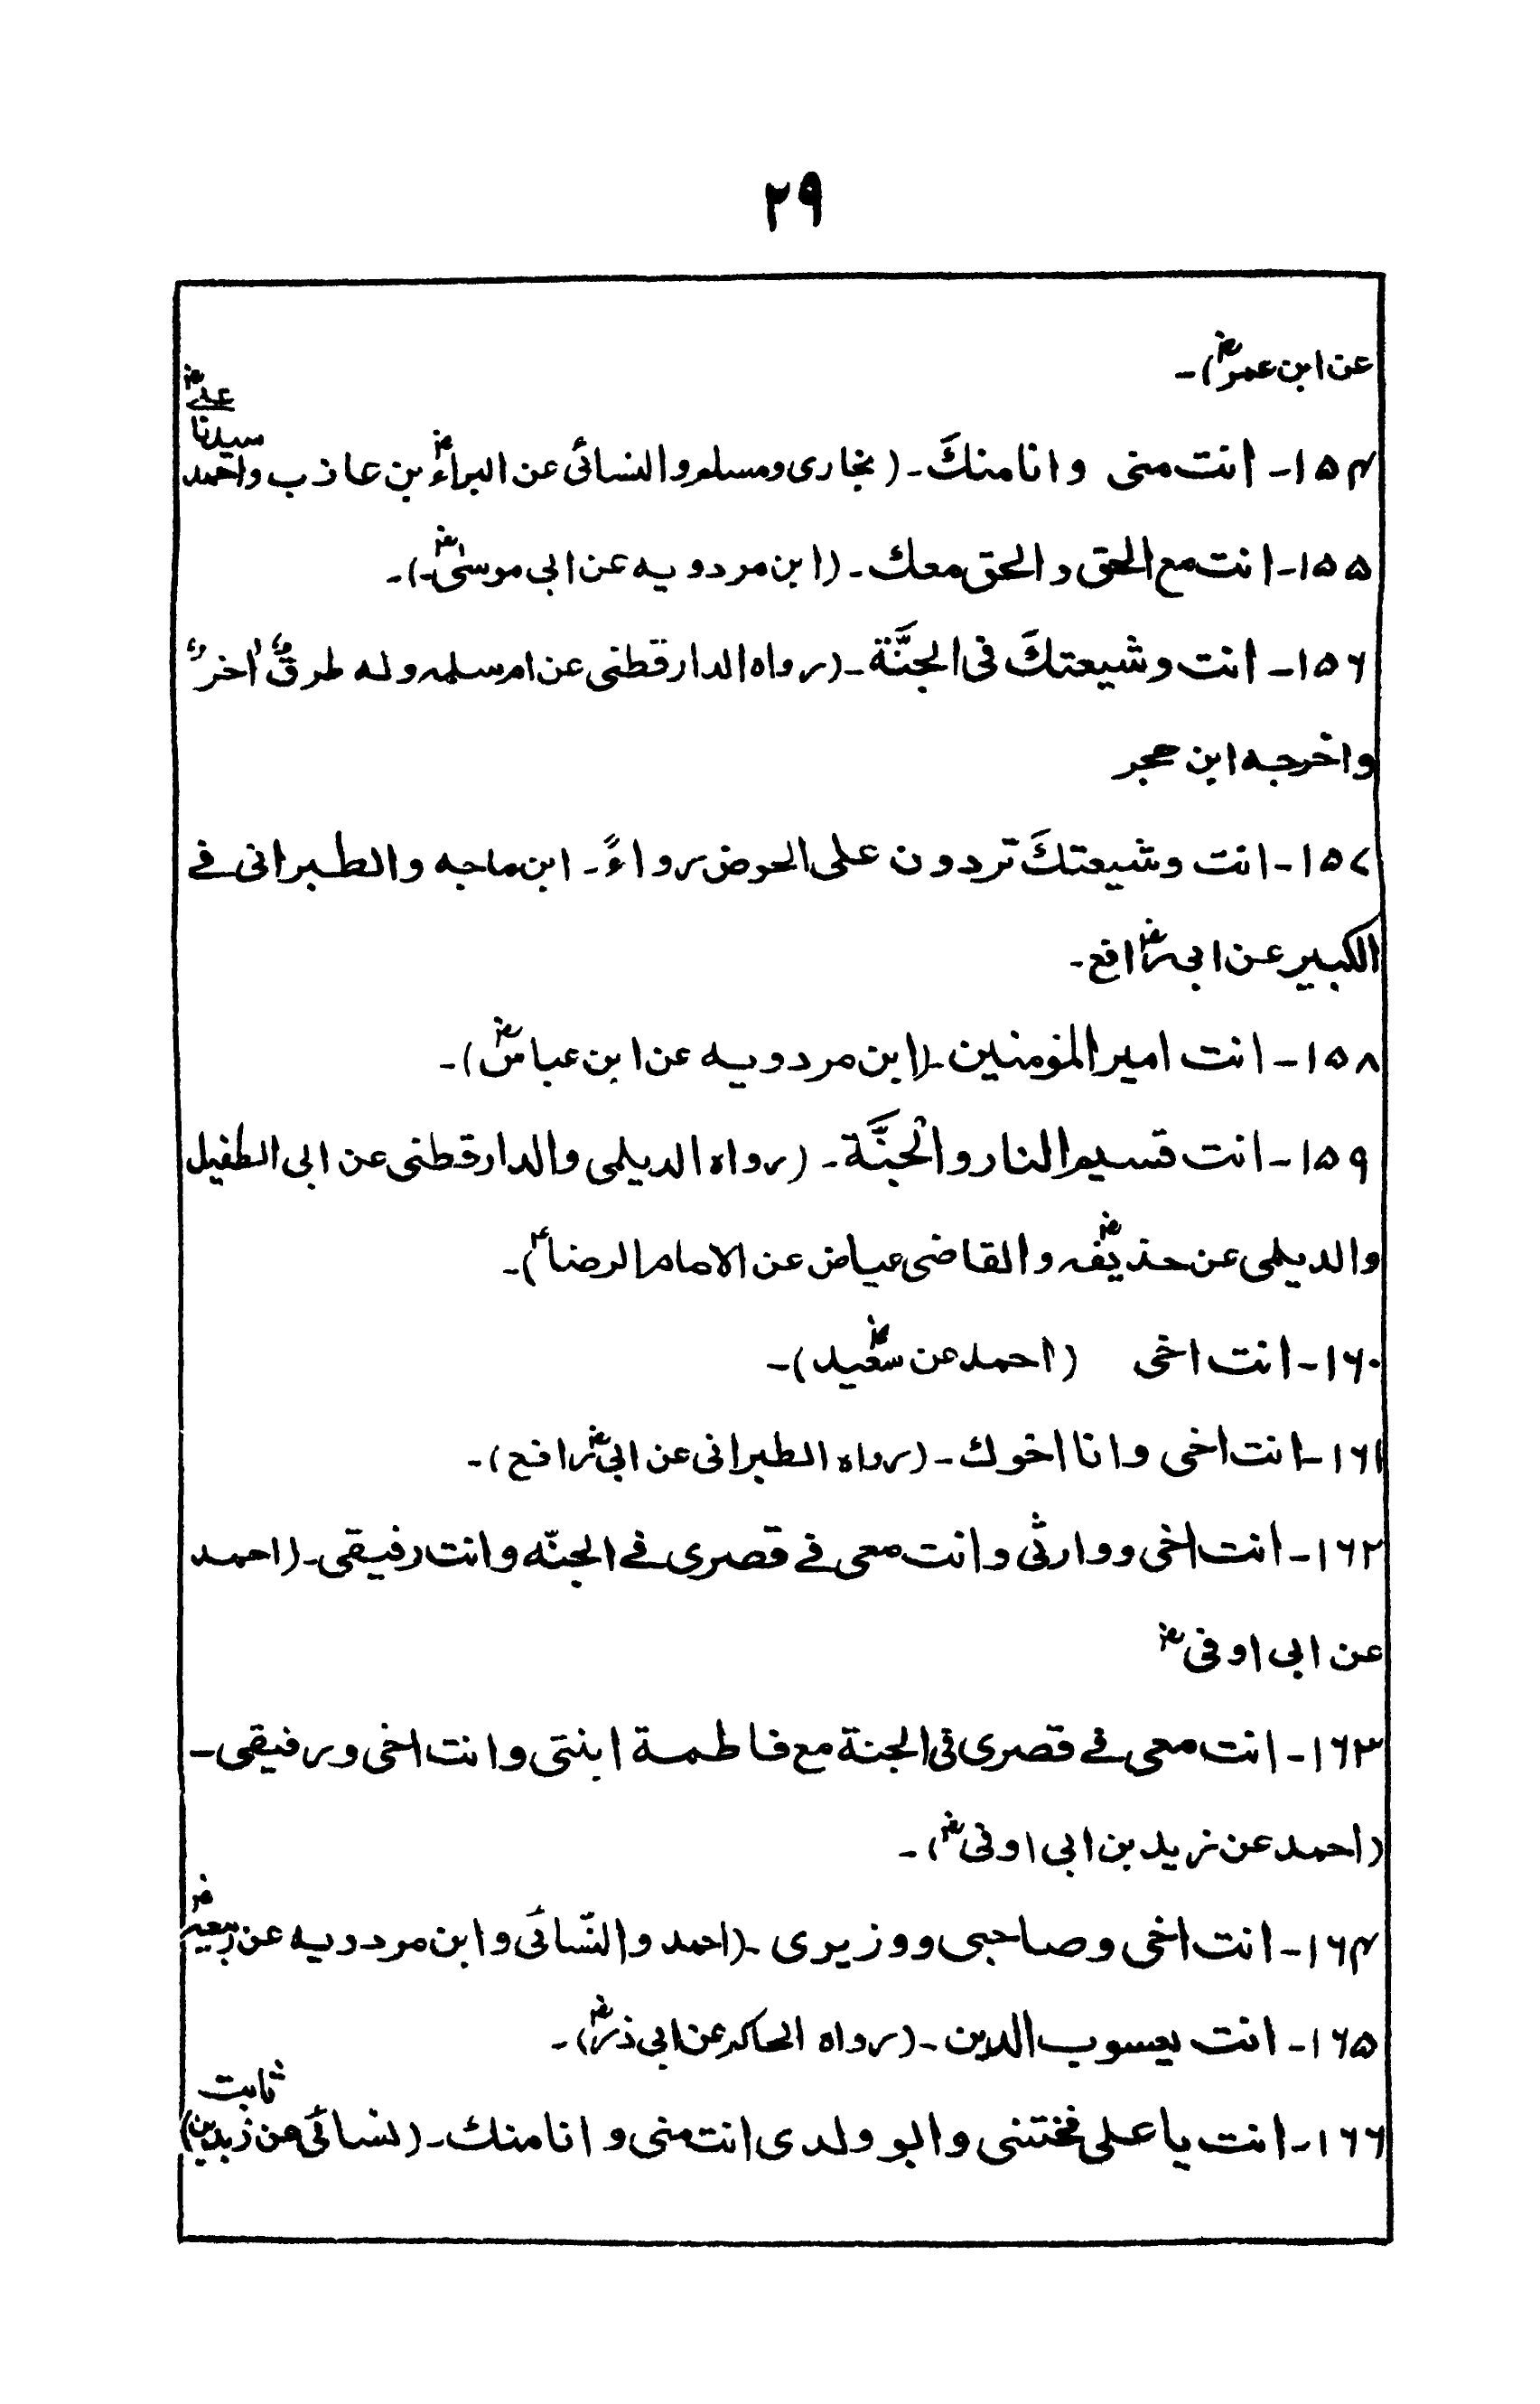 ۲۹
عن ابن عمرؓ)۔
۱۵۴۔ انت منی وانا منكَ۔ (بخاری ومسلم والنسائی عن البراءؓ بن عازب واحمد سیدنا علیؓ
۱۵۵۔ انت مع الحق والحق معك۔ (ابن مردویه عن ابی موسیٰؓ۔)۔
۱۵۶۔ انت وشیعتكَ فی الجنَّة۔ (رواہ الدارقطنی عن ام سلمہ وله طرقٌ اُخرٌ
واخرجه ابن حجر
۱۵۷۔ انت وشیعتكَ تردون علی الحوض رواءً۔ ابن ماجه والطبرانی فے
الکبیر عن ابی رافعؓ۔
۱۵۸۔ انت امیر المؤمنین۔ (ابن مردویه عن ابن عباسؓ)۔
۱۵۹۔ انت قسیم النار والْجَنَّة۔ (رواہ الدیلمی والدارقطنی عن ابی الطفیل
والدیلمی عن حذیفہؓ والقاضی عیاض عن الامام الرضاؑ)۔
۱۶۰۔ انت اخی (احمد عن سعیدؓ)۔
۱۶۱۔ انت اخی وانا اخوك۔ (رواہ الطبرانی عن ابی رافعؓ)۔
۱۶۲۔ انت اخی ووارثی وانت معی فے قصری فے الجنّه وانت رفیقی۔ (احمد
عن ابی اوفیؓ
۱۶۳۔ انت معی فے قصری فی الجنة مع فاطمة ابنتی وانت اخی ورفیقی۔
(احمد عن زید بن ابی اوفیؓ)۔
۱۶۴۔ انت اخی وصاحبی ووزیری۔ (احمد والنّسائی وابن مردویه عن ربیعهؓ
۱۶۵۔ انت یعسوب الدین۔ (رواہ الحاکم عن ابی ذرؓ)۔
۱۶۶۔ انت یا علی فختنی وابو ولدی انت منی وانا منك۔ (نسائی عن زید بن ثابت)